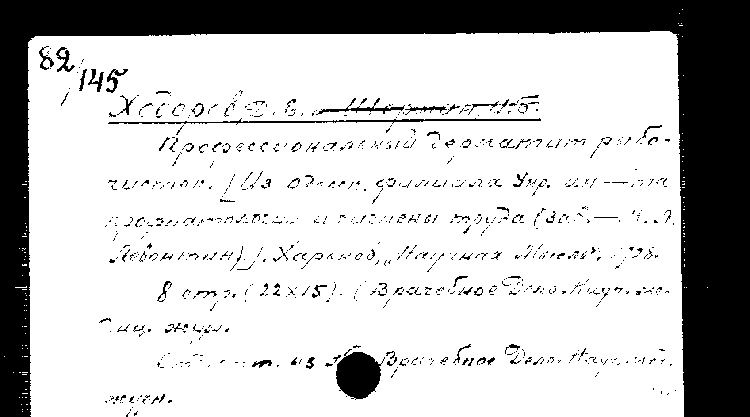 82/145
Ходорев, Д. В. и Шерман, И. Б.
Профессиональный дерматит рыбо-
чисток. [Из одесск. филиала Укр. ин-та
профпатологии и гигиены труда (Зав. — Л.
Левонтин).]. Харьков, „Научная Мысль", 1928.
8 стр. (22х15). (Врачебное Дело. Науч. ме-
диц. журн.
Отд. отт. из Врачебное Дело. Науч. мед.
журн.